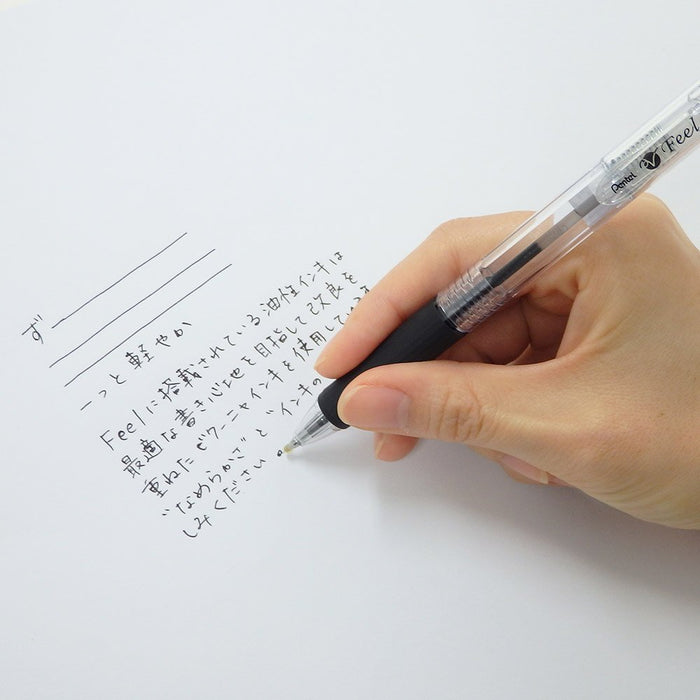 ず
ーっと軽やか
Feelに搭載されている油性インキは
最適な書き心地を目指して改良を
重ねたビクーニャインキを使用している
"なめらかさ"と"インキの
しみください。
Pentel Feel